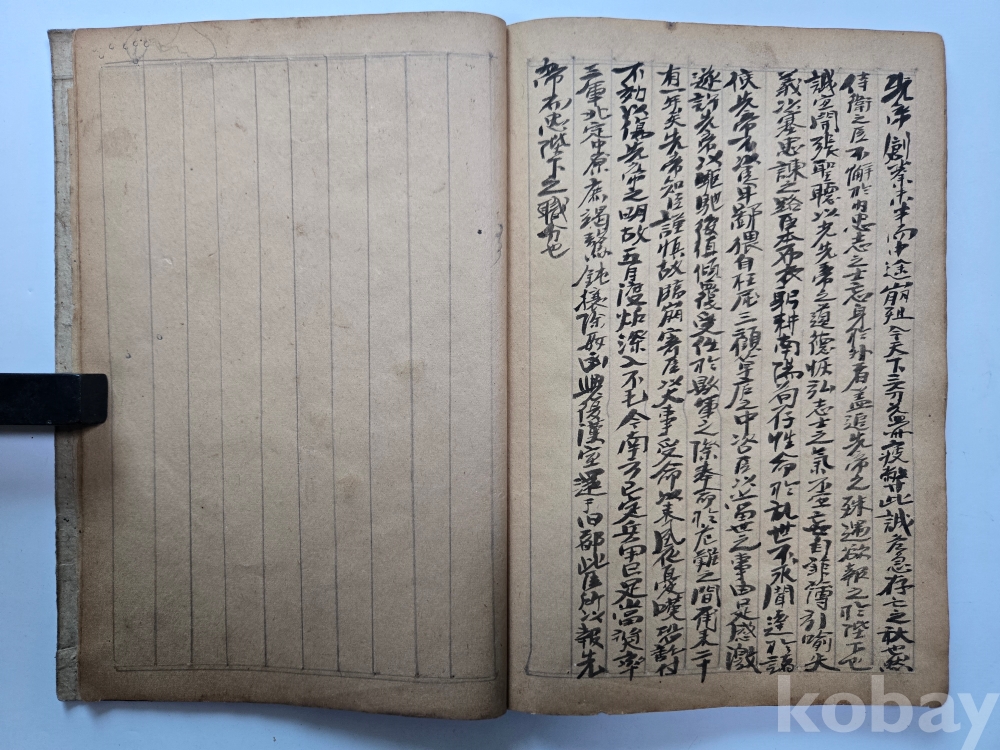 先帝創業未半而中途崩殂今天下三分益州疲弊此誠危急存亡之秋也然
侍衛之臣不懈於內忠志之士忘身於外者盖追先帝之殊遇欲報之於陛下也
誠宜開張聖聽以光先帝之遺德恢弘志士之氣不宜妄自菲薄引喻失
義以塞忠諫之路臣本布衣躬耕南陽苟存性命於乱世不求聞達於諸
侯先帝不以臣卑鄙猥自枉屈三顧草店之中咨臣以當世之事由是感激
遂許先帝以驅馳後值傾覆受任於敗軍之際奉命於危難之間爾来二十
有一年矣先帝知臣謹慎故臨崩寄臣以大事受命以来夙夜憂嘆恐託付
不効以傷先帝之明故五月渡瀘深入不毛今南方已定兵甲已足當奨率
三軍北定中原庶竭駑鈍攘除奸凶興復漢室還于旧都此臣所以報先
帝而忠陛下之職分也
kobay